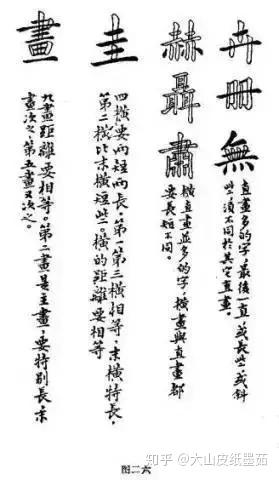 卉冊無
直畫多的字,最後一直,或長些,或斜
些,須不同於其它直畫。
赫聶肅
橫直畫並多的字,橫畫與直畫都
要長短不同。
圭
四橫要兩短兩長,第一第三橫相等,末橫特長,
第二橫比末橫短些。橫的距離要相等
畫
九畫距離要相等。第二畫是主畫,要特別長,末
畫次之,第五畫又次之。
图二六
知乎 @大山皮纸墨茹